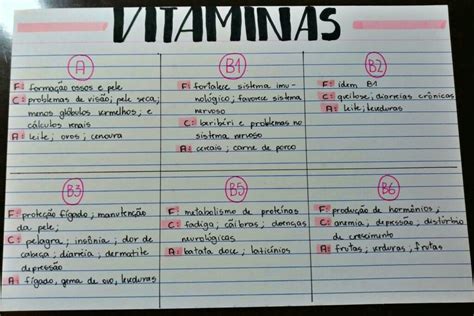 VITAMINAS
A
F: formação ossos e pele
C: problemas de visão; pele seca;
menos glóbulos vermelhos; e
cálculos renais
A: leite, ovos; cenoura
B1
F: fortalece sistema imu-
nológico; favorece sistema
nervoso
C: beribéri e problemas no
sistema nervoso
A: cereais; carne de porco
B2
F: idem B1
C: queilose; diarreias crônicas
A: leite; leveduras
B3
F: proteção fígado; manutenção
da pele;
C: pelagra; insônia; dor de
cabeça; diarreia; dermatite
depressão
A: fígado, gema de ovo, leveduras
B5
F: metabolismo de proteínas
C: fadiga; cãibras; doenças
neurológicas
A: batata doce; laticínios
B6
F: produção de hormônios;
C: anemia, depressão; distúrbio
de crescimento
A: frutas; verduras; frutas